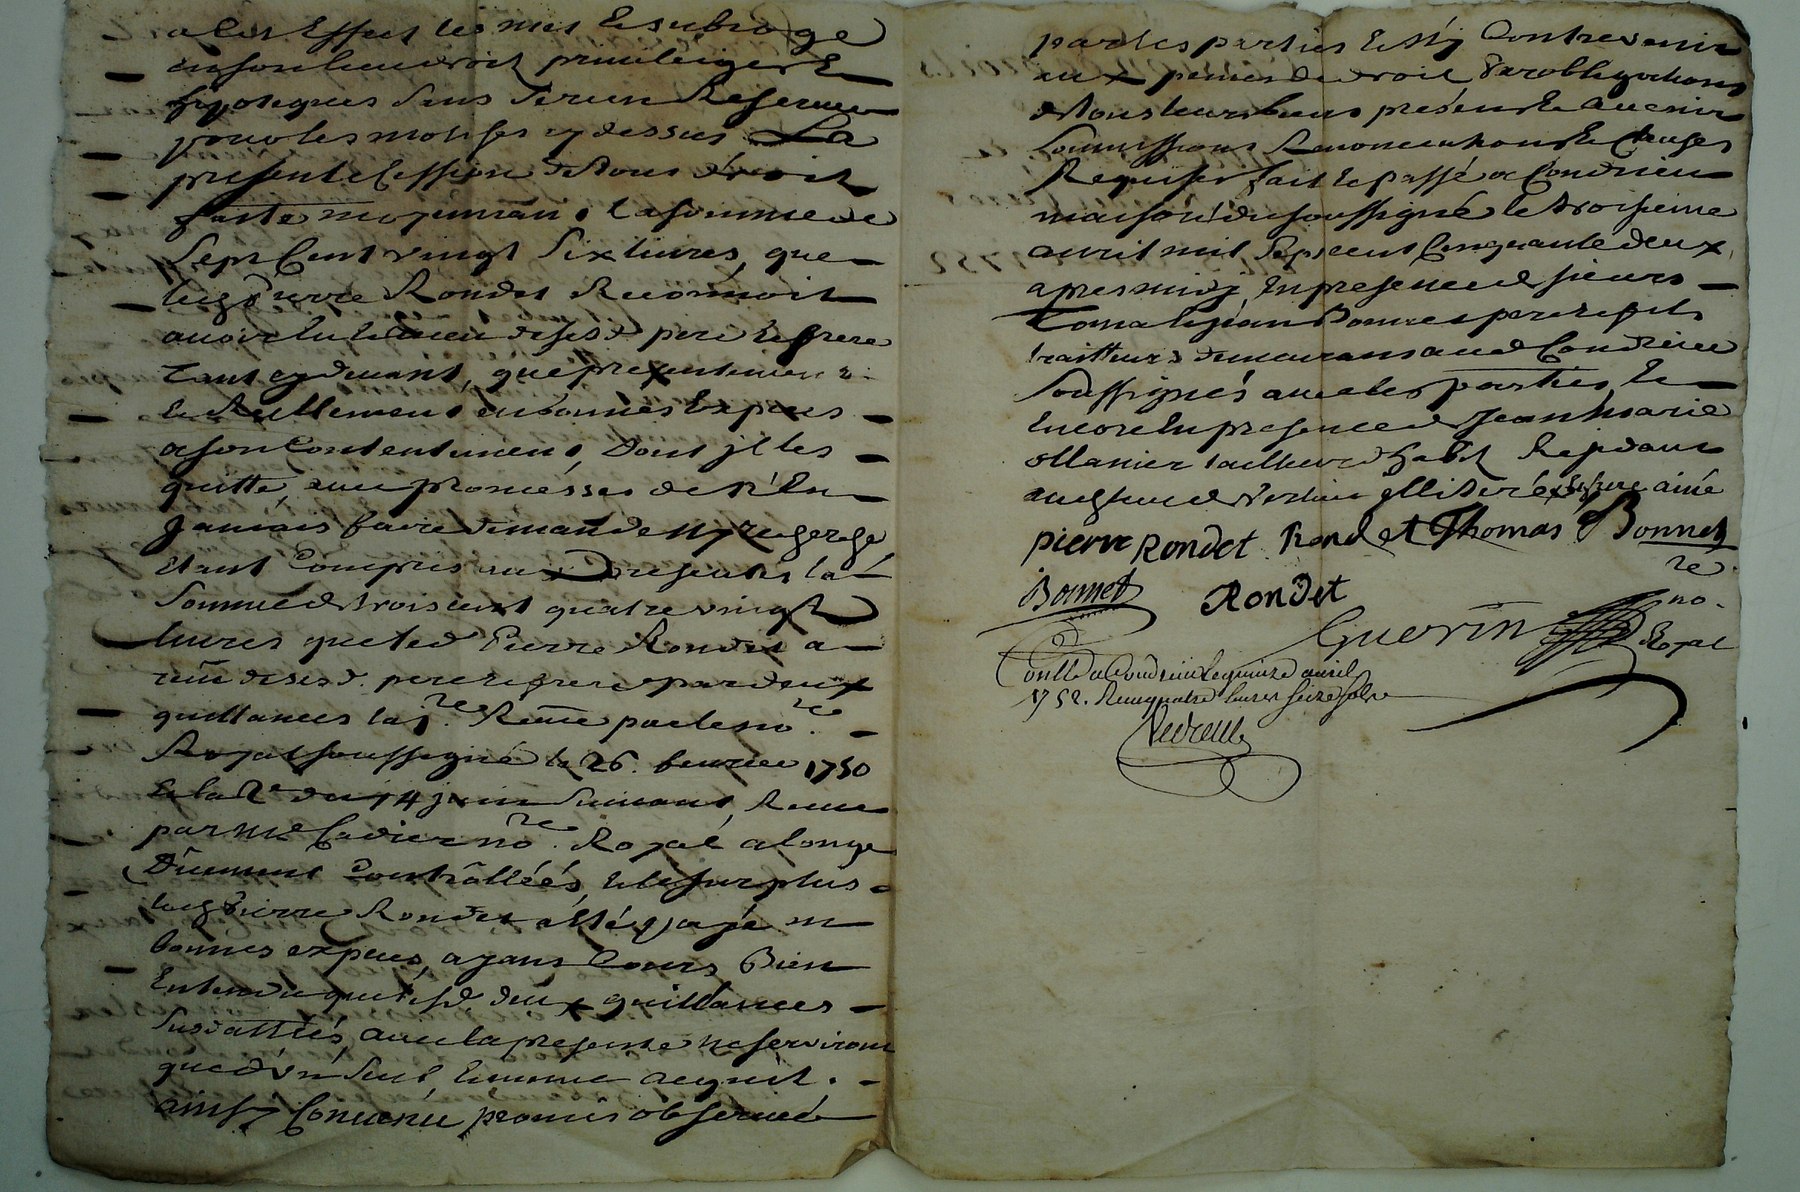 a cet Effect les met et subroge
en son lieu droit privileiges et
hypoteques sans aucune Reserve
pour les motifs cy dessus La
presente Cession de tous droit
faite moyennant la somme de
sept Cent vingt six livres, que
led Pierre Rondet Reconnoit
avoir eu et receu de sesd pere et frere
tant cy devant, que presentement
et Reellement en bonnes Especes
a son Contentement, Dont il les
quitte avec promesses de n'en
jamais faire demande ny recherche
étant Compris aux presentes la
somme de trois cent quatre vingt
livres que led Pierre Rondet a
receu de sesd. pere et frere par deux
quittances la p.re Receue par le no.re
Royal soussigné le 26. fevrier 1750
et la 2e du 14 juin suivant, Receue
par me Cadier no.re Royal a longe
Duement Controllées, et le surplus
led Pierre Rondet a été payé en
bonnes especes, ayant Cours Bien
Entendu que lesd deux quittances
susdattées, avec la presente ne serviront
que d'un seul et meme acquit.
ainsy Convenu promis observer
par les parties et n'y Contrevenir
aux peines de droit par obligations
de tous leurs biens presents et avenir
soumissions Renonciations et Clauses
Requises fait et passé a Condrieu
maison du soussigné le troisieme
avril mil sept cent Cinquante deux,
apres midy, En presence de sieurs
Toma et jean Bonnet pere et fils
traitteurs demeurans aud Condrieu
soussignés avec les parties, et
encore En presence de Jean Marie
ollanier tailleur d'habit Residant
aud lieu de illiteré frere ainé
pierre Rondet Rondet Thomas Bonnet
Bonnet Rondet
Guerin no.re Royal
Conllé a Condrieu le quinze avril
1752. Receu quatre livres seize sols